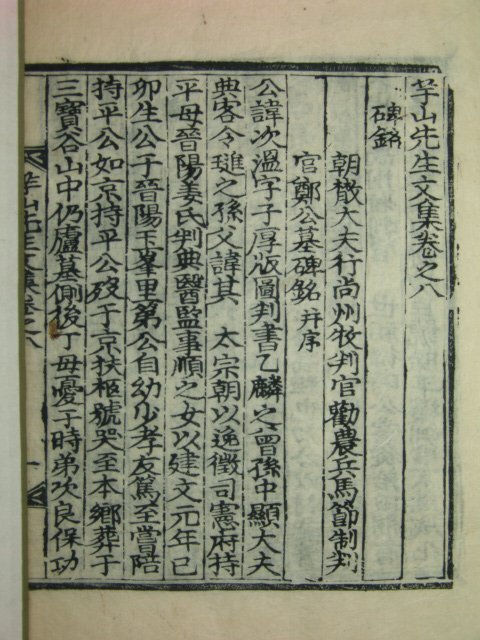 山先生文集卷之八
碑銘
朝散大夫行尙州牧判官勸農兵馬節制判
官鄭公墓碑銘 并序
公諱次溫字子厚版圖判書乙麟之曾孫中顯大夫
典客令之孫父諱其 太宗朝以逸徵司憲府持
平母晉陽姜氏判典醫監事順之女以建文元年己
卯生公于晉陽玉峯里第公自幼少孝友篤至嘗陪
持平公如京持平公歿于京扶柩號哭至本鄕葬于
三寶谷山中仍廬墓側後丁母憂于時弟次良保功
山先生文集卷之八
一